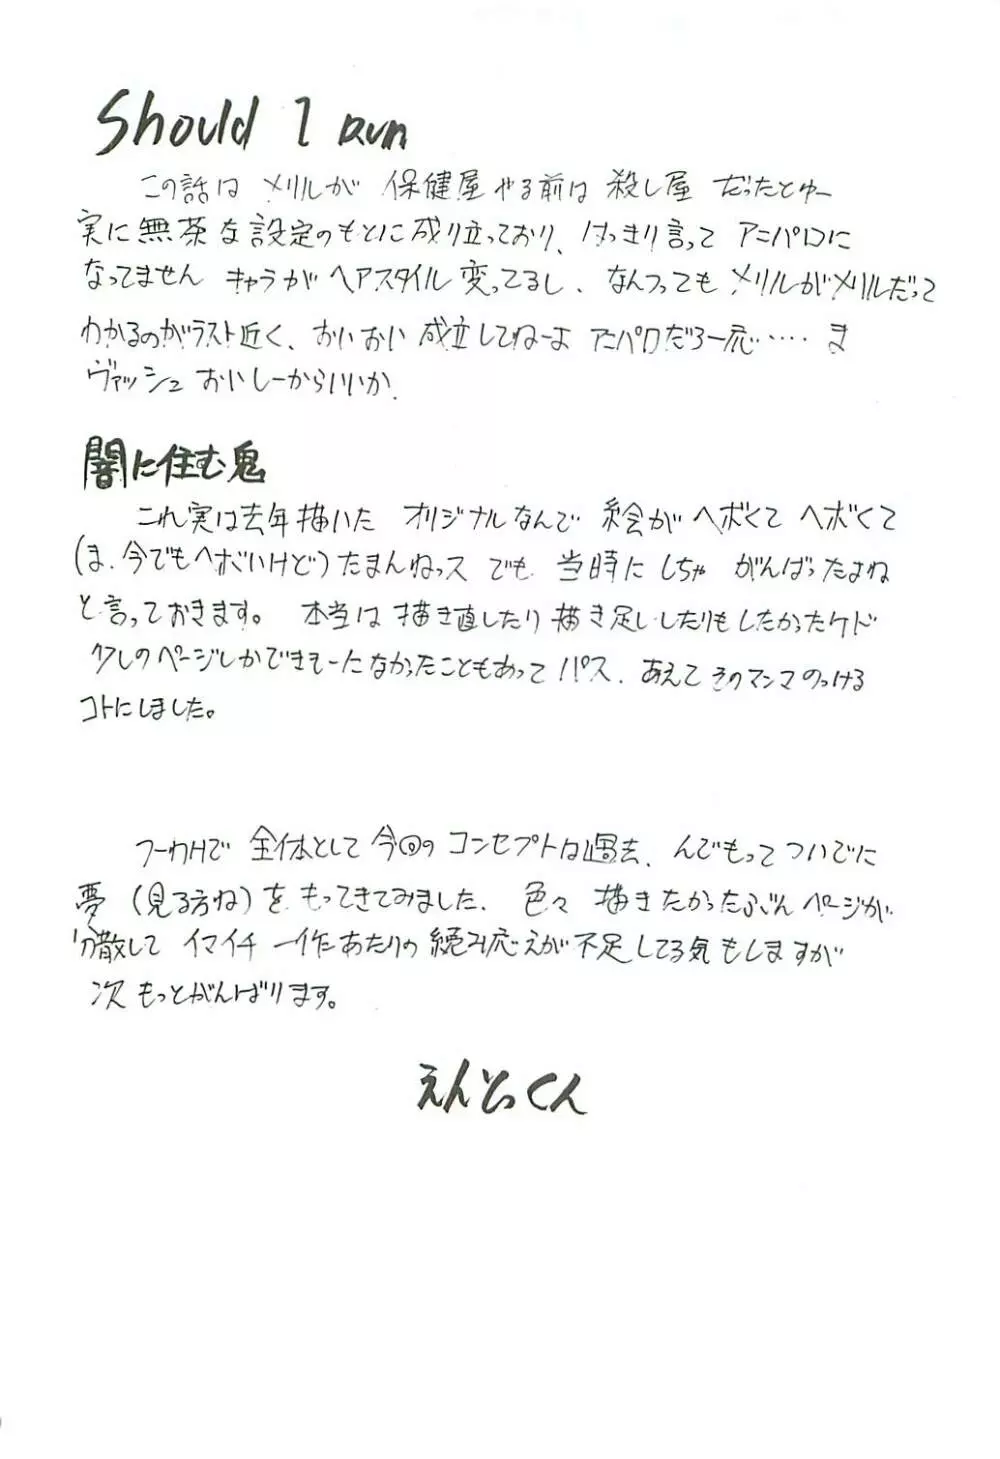 Should I Run
この話は メリルが 保健屋やる前は 殺し屋 だったとゆー
実に無茶な設定のもとに成り立っており、はっきり言って アニパロに
なってません キャラがヘアスタイル変ってるし、なんつっても メリルがメリルだって
わかるのがラスト近く、おいおい 成立してねーよ アニパロだろ一応‥‥‥ ま
ヴァッシュ おいしーからいいか.
闇に住む鬼
これ実は去年描いた オリジナルなんで 絵がヘボくて ヘボくて
(ま、今でもヘボいけど)たまんねっス でも 当時にしちゃ がんばったよね
と言っておきます。 本当は描き直したり描き足ししたりもしたかったケド
少しのページしかできそーになかったこともあって パス. あえてそのマンマのっける
コトにしました。
つーわけで 全体として今回の コンセプトは過去、んでもってついでに
夢(見る方ね)を もってきてみました. 色々 描きたかったぶん ページが
分散して イマイチ 一作あたりの読み応えが不足してる気もしますが
次 もっとがんばります。
えんとっくん